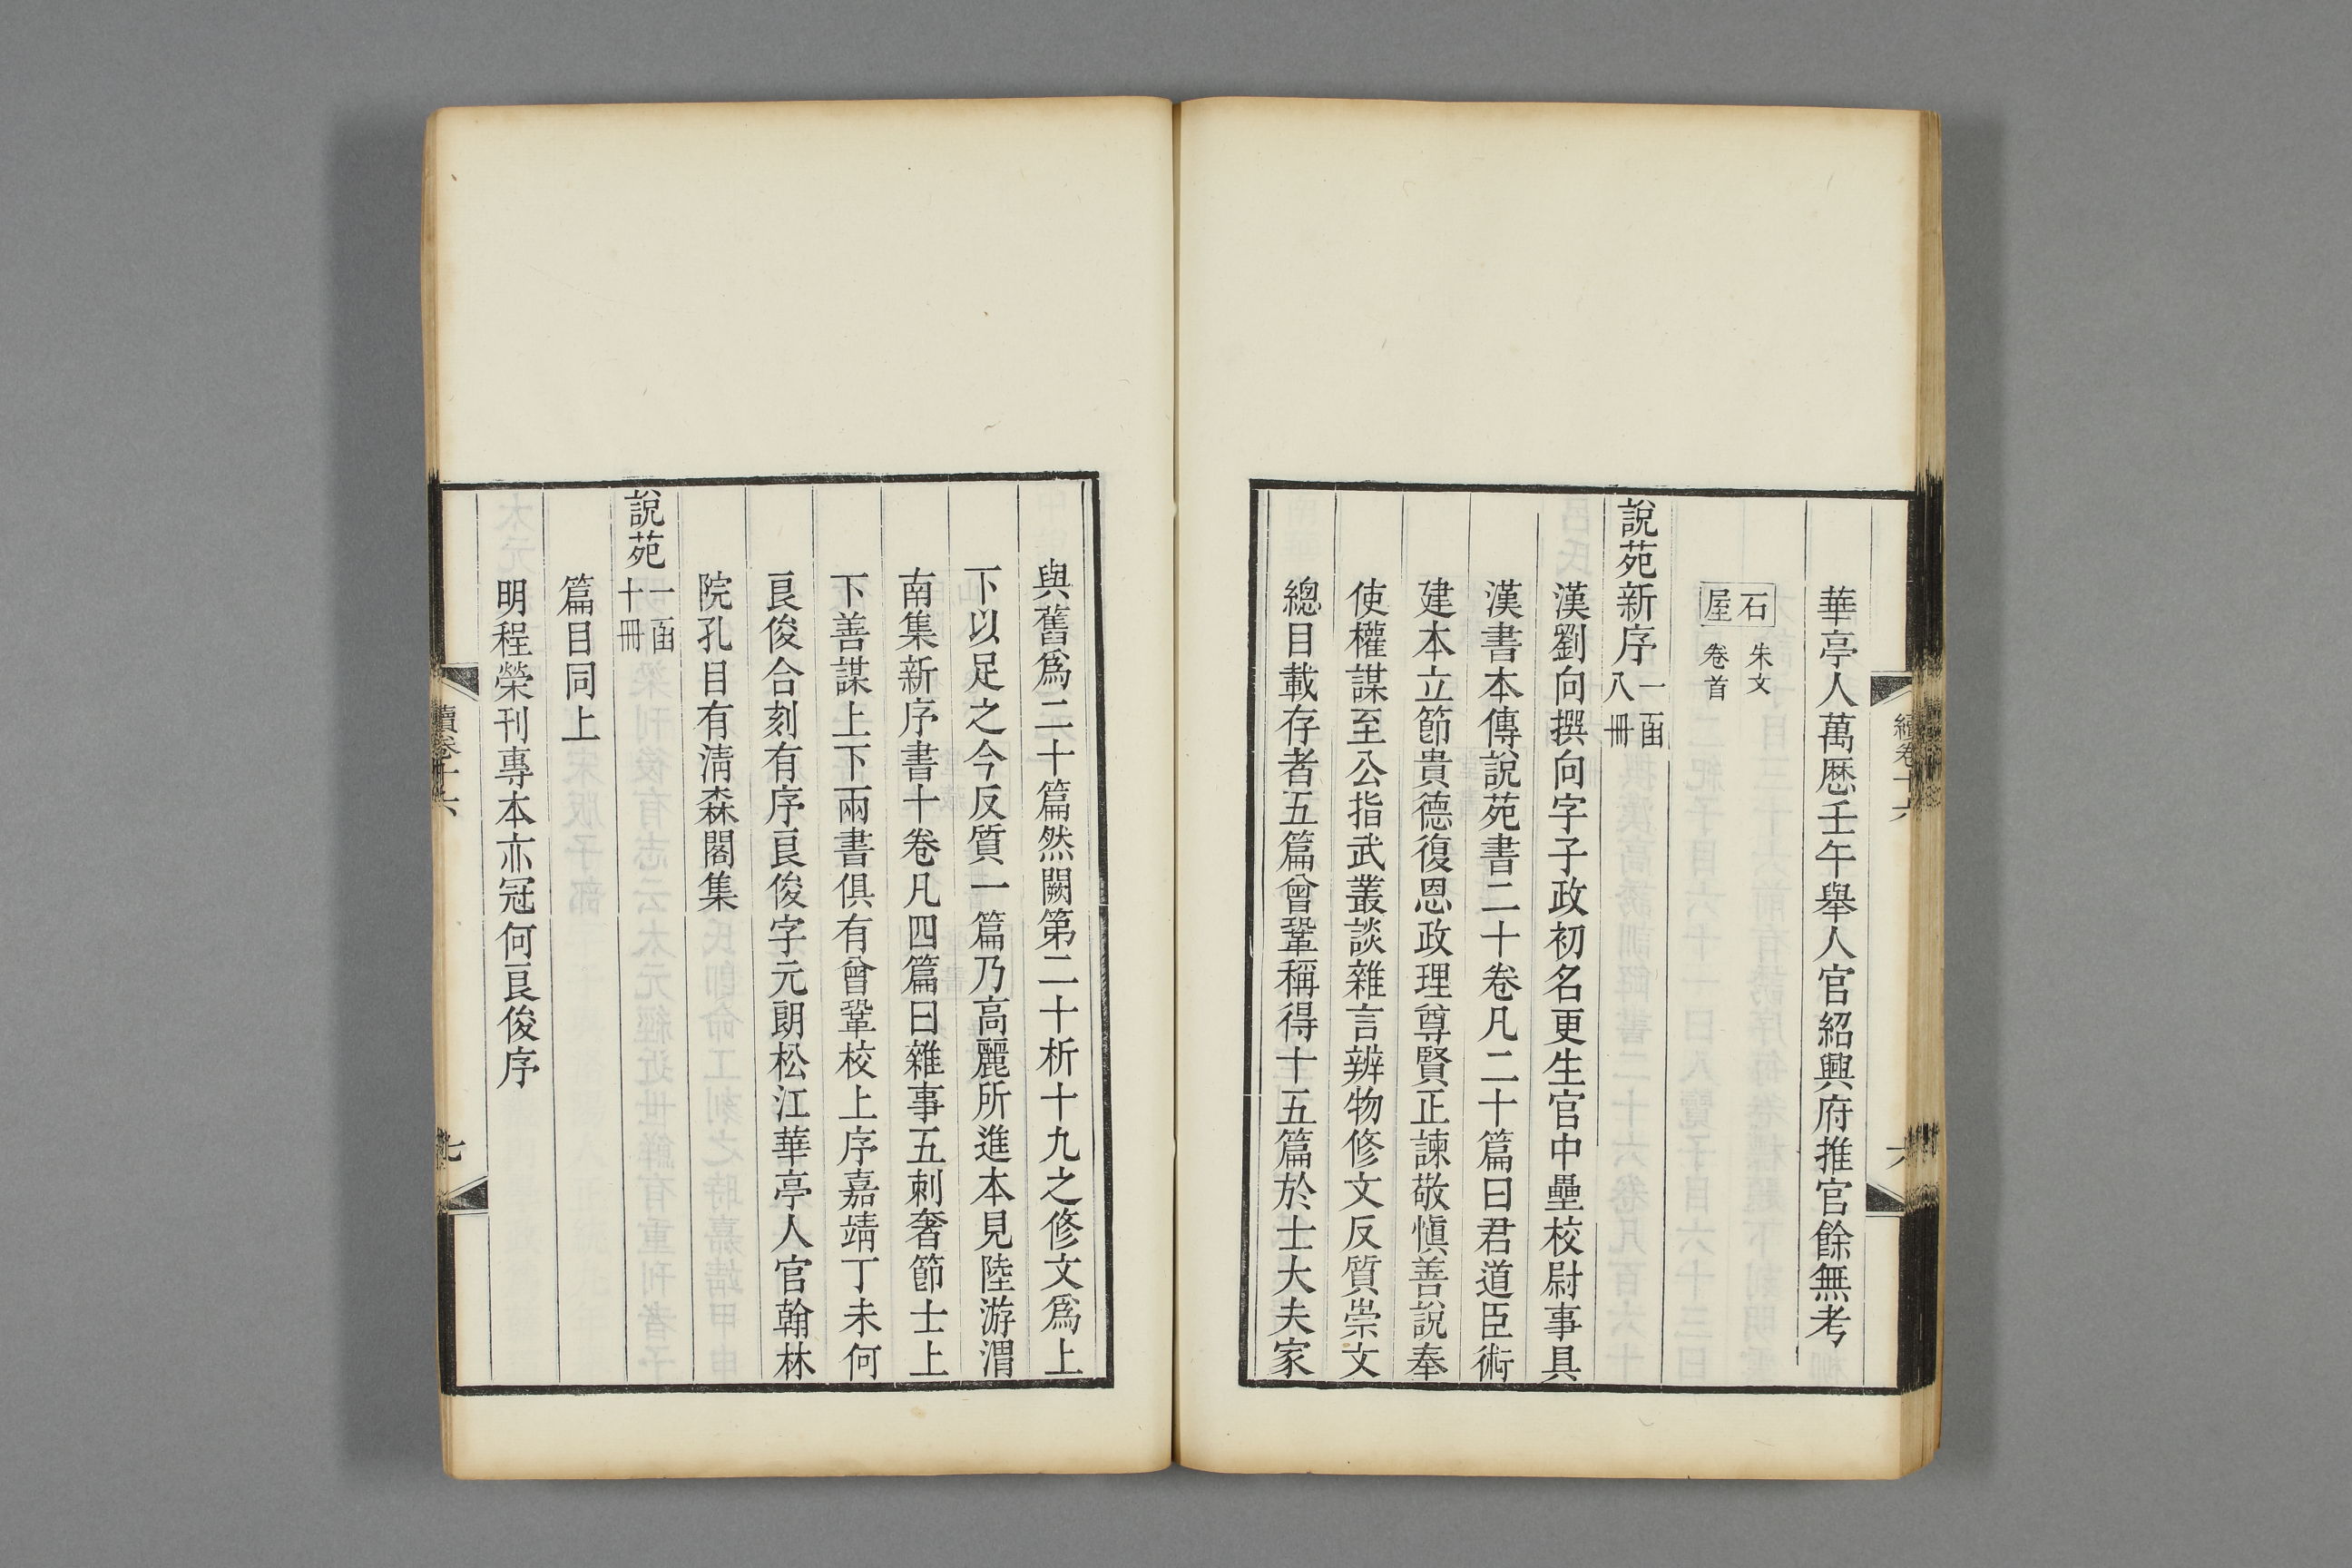 華亭人萬厯壬午舉人官紹興府推官餘無考
石屋 朱文卷首
說苑新序一函八冊
漢劉向撰向字子政初名更生官中壘校尉事具
漢書本傳說苑書二十卷凡二十篇曰君道臣術
建本立節貴德復恩政理尊賢正諫敬愼善說奉
使權謀至公指武叢談雜言辨物修文反質崇文
總目載存者五篇曾鞏稱得十五篇於士大夫家
續卷十六
六
與舊爲二十篇然闕第二十析十九之修文爲上
下以足之今反質一篇乃高麗所進本見陸游渭
南集新序書十卷凡四篇曰雜事五刺奢節士上
下善謀上下兩書俱有曾鞏校上序嘉靖丁未何
良俊合刻有序良俊字元朗松江華亭人官翰林
院孔目有淸森閣集
說苑一函十冊
篇目同上
明程榮刊專本亦冠何良俊序
續卷十六
七